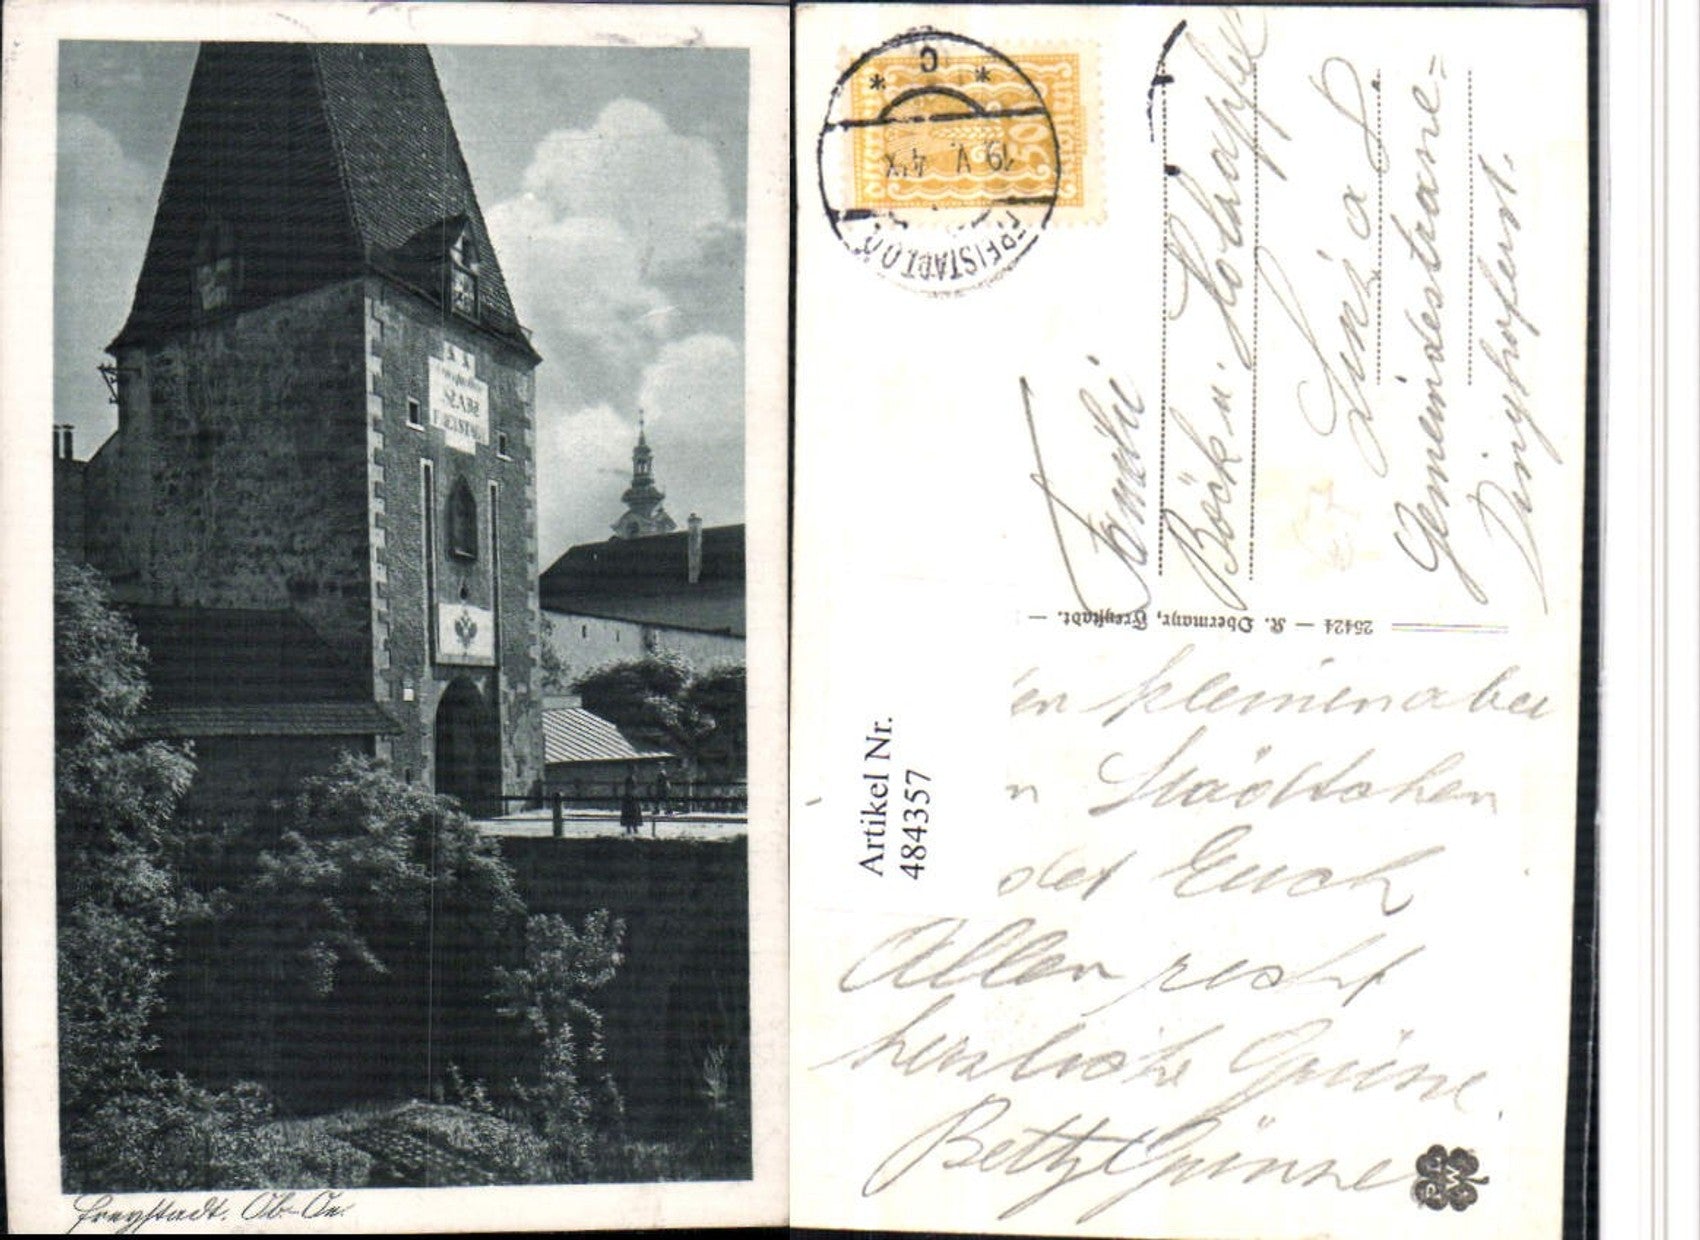 SEABS
FREISTADT
Freystadt. Ob.-Oe.
C
50
19. V.
FREISTADT O.Ö.
Familie
Böck u. Holzapfel
Linz a D.
Gemeindestrasse=
Dinghoferst.
25424 — K. Obermayr, Freystadt. —
Artikel Nr.
4843357
en kleinen aber
n Städtchen
det Euch
Allen recht
herzliche Grüsse
Betty